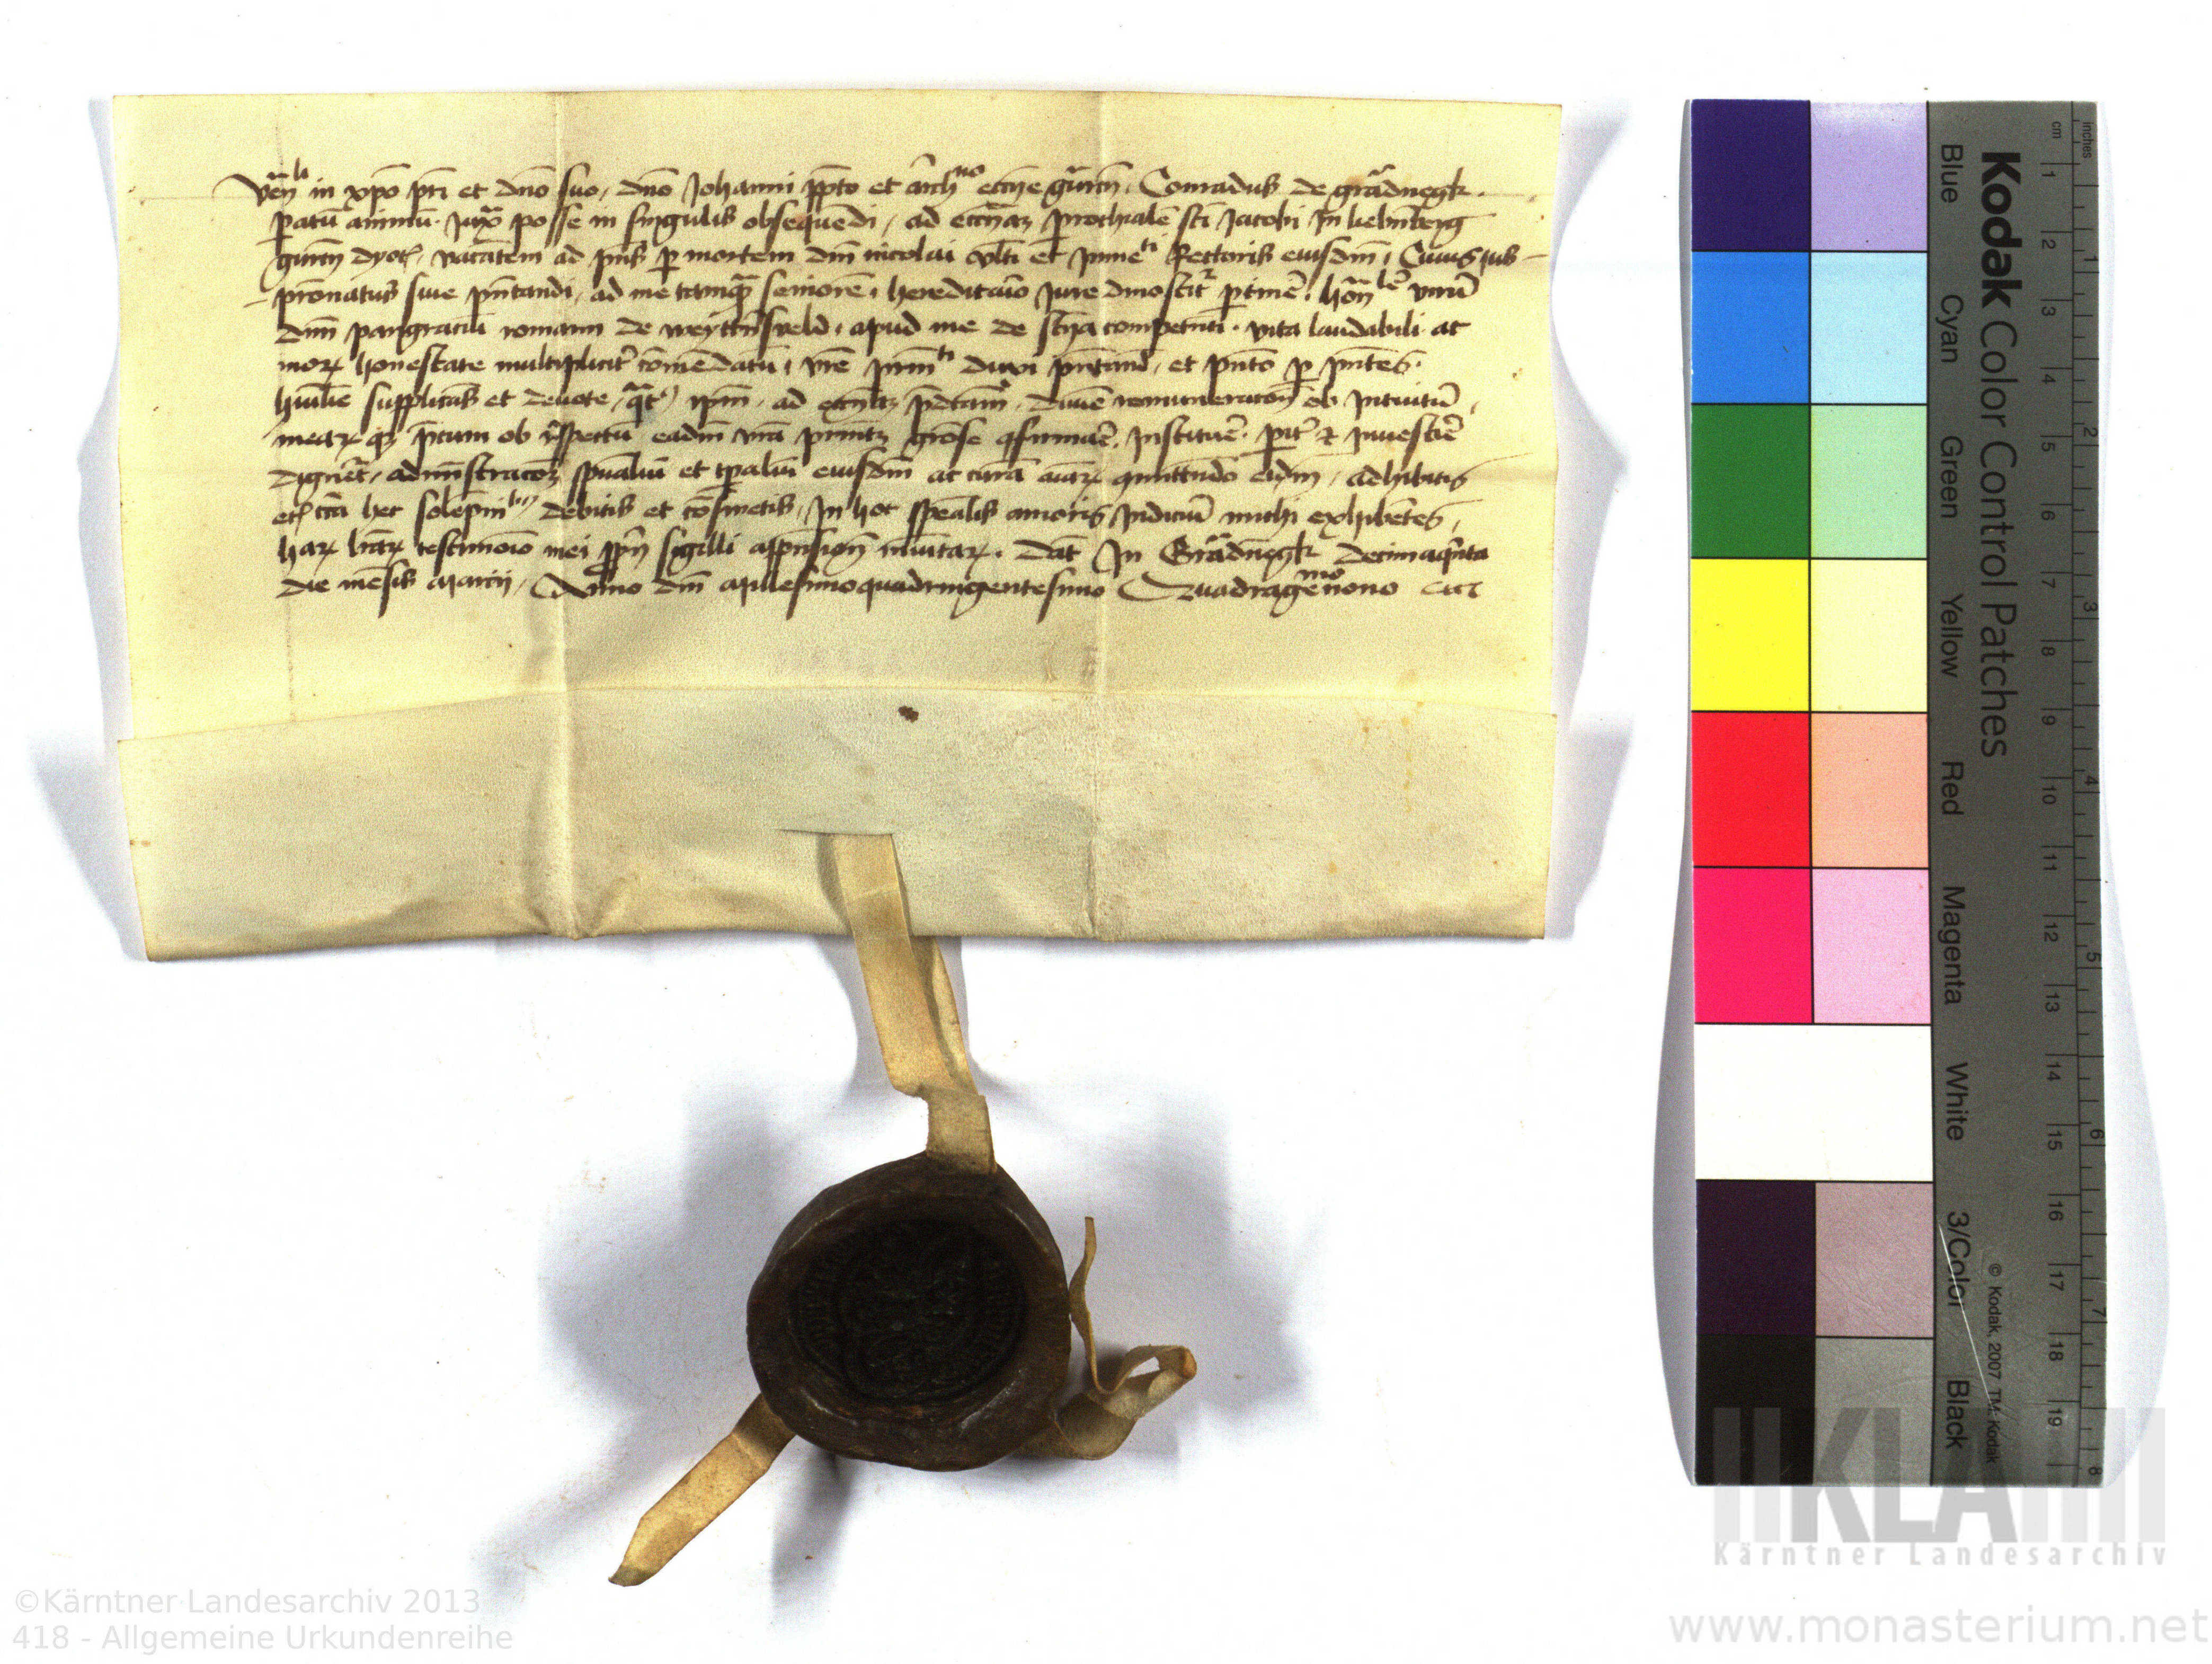 Ven^li in xpo pri et dno suo, dno Johanni ppto et arch^no eccie Gurcn, Conradus de Gradnegk
patu animu juxa posse in singulis obsequedi, ad ecciaz prochiale sci Jacobi in
Gurcn dyoc, vacatem ad pns p mortem dni Nicolai ulti et Rectoris eiusdm, Cuius jus
pronatus sive pntandi, ad me tamq seniore, hereditario jure dinoscit ptine, hon^le viru
dnm Pangraciu romann de weyttnsveld, apud me de scia competenti, vita laudabili ac
mor honestate multiplicit comedatu, vre duxi pntand, et pnto p pntes
humile supplicas et devote, qt ipm, ad ecciaz pdcam, divie remuneracon ob intuitu,
mear qz pcum ob respectu eadm vra gose qfirmare, instituere, pit et investire
dignet, administracoz spualiu et tpaliu eiusdm ac cura aiar qmittendo eidm, adhibitis
etc cca hec solepni^bus debitis et cosuetis, In hoc spealis amoris judiciu michi exhibentes,
har lrar testimoio mei ppri sigilli appnsion munitar. Dat In Gradnegk decimaqnta
die mesis Marcij, Anno dni Millesimoquadringentesimo Quadrage^mo nono etc
Kodak Color Control Patches
Blue Cyan Green Yellow Red Magenta White 3/Color Black
© Kodak, 2007 TM: Kodak
cm 1 2 3 4 5 6 7 8 9 10 11 12 13 14 15 16 17 18 19
inches 1 2 3 4 5 6 7 8
KLA
Kärntner Landesarchiv
©Kärntner Landesarchiv 2013
418 - Allgemeine Urkundenreihe
www.monasterium.net